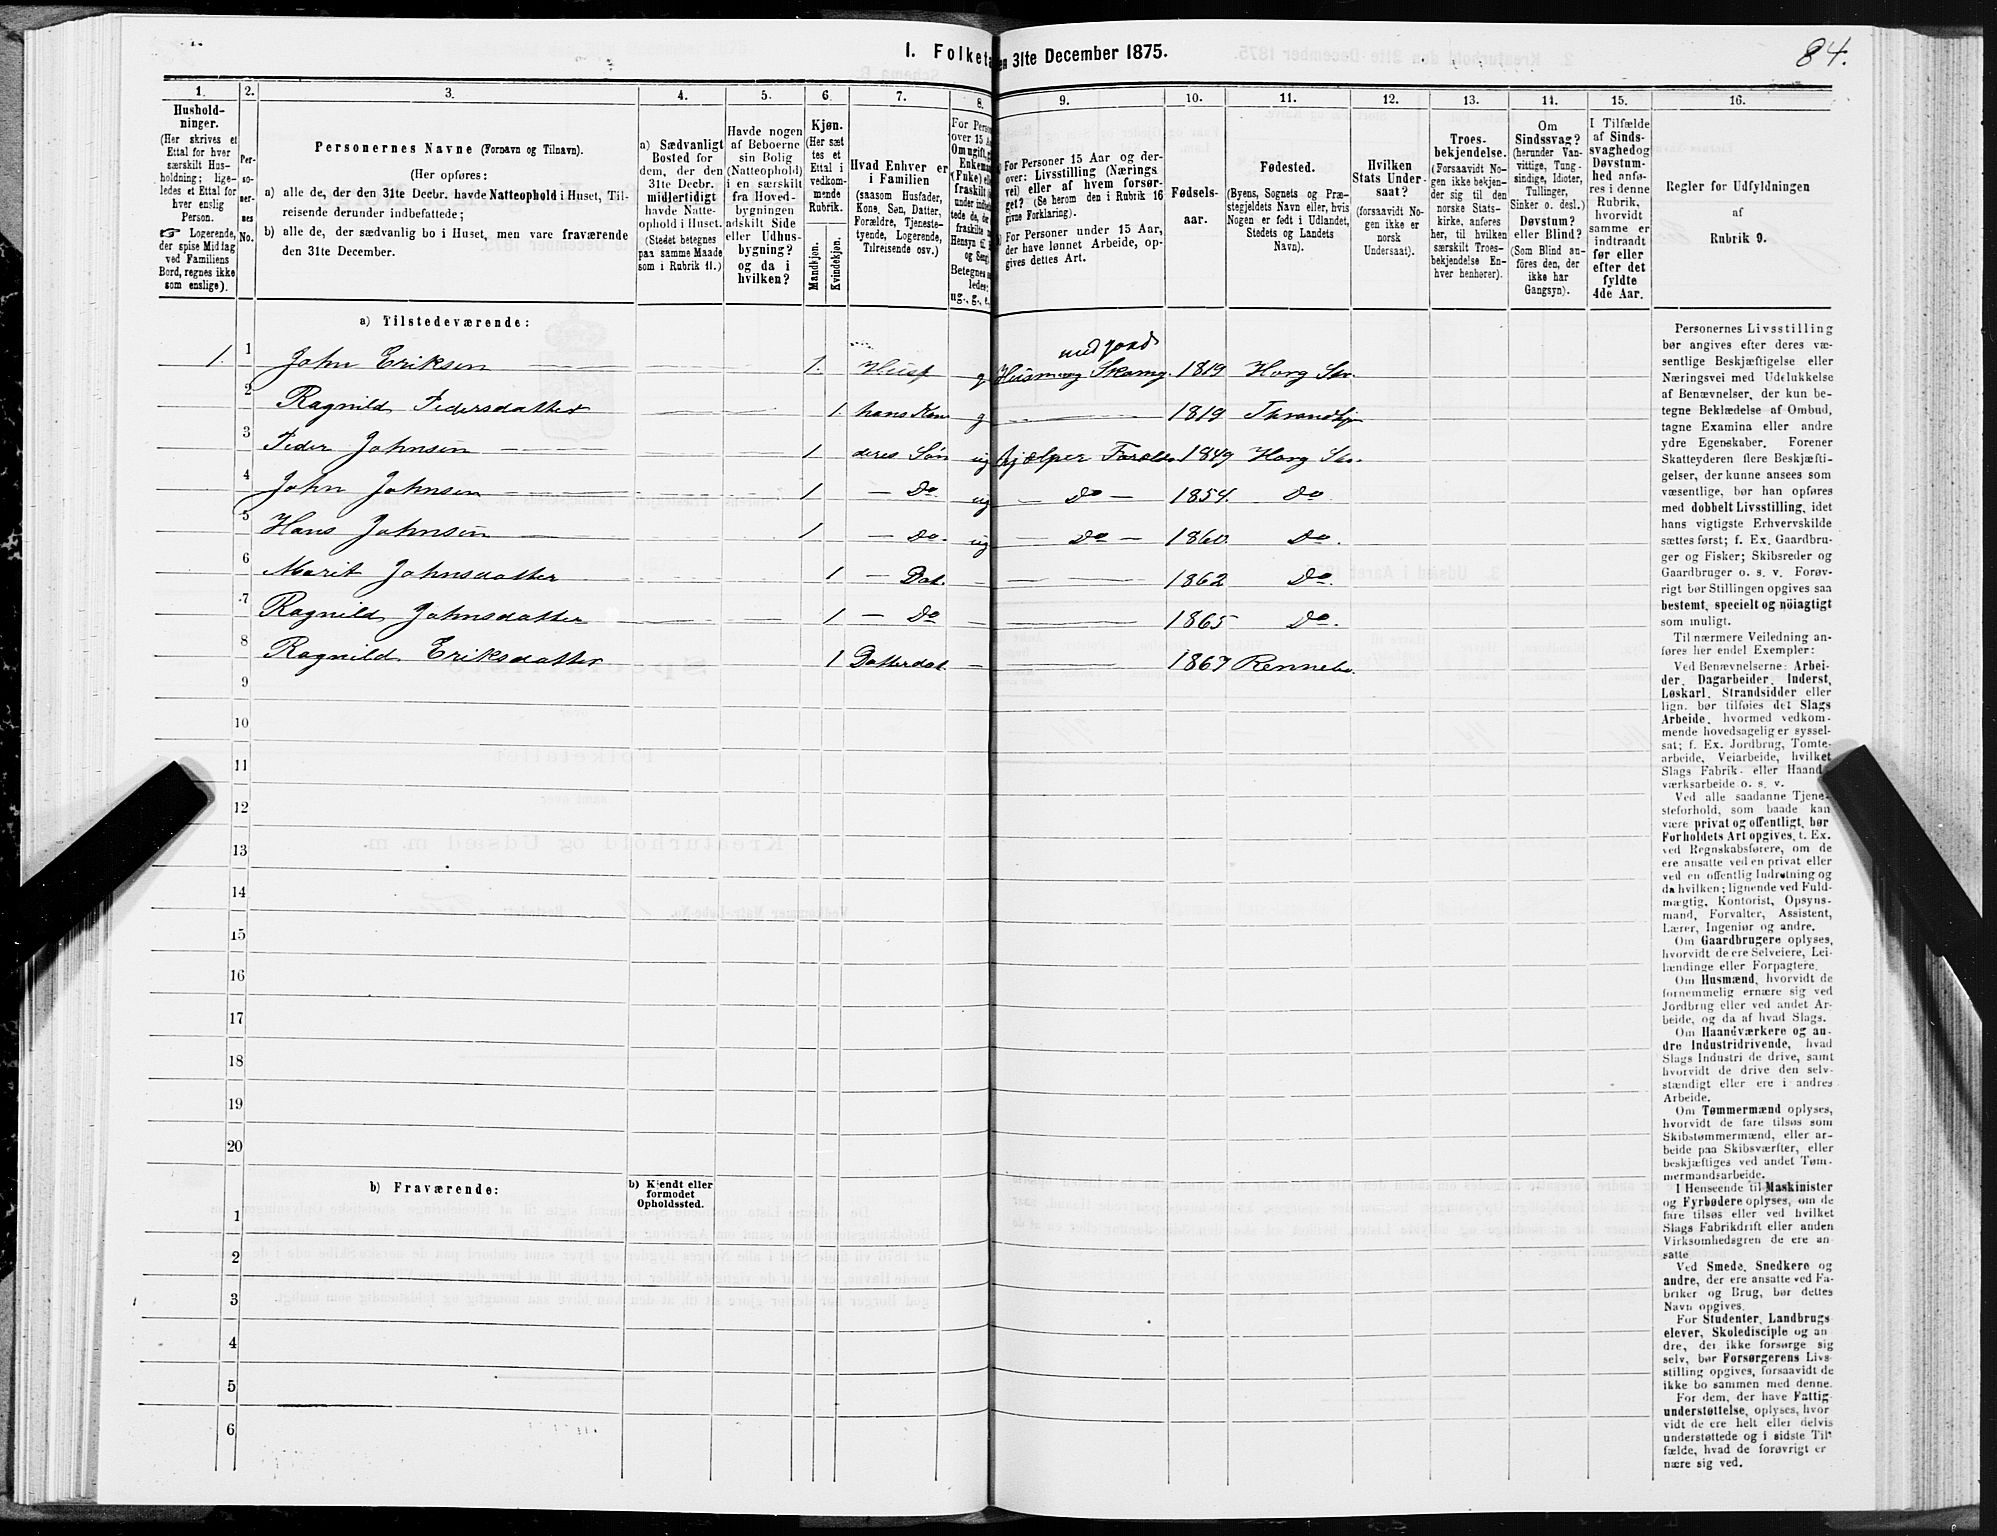 84.
I. Folketa en 31te December 1875.
1. 2. 3. 4. 5. 6. 7. 8. 9. 10. 11. 12. 13. 14. 15. 16.
Hushold-
ninger.
(Her skrives et
Ettal for hver
særskilt Hus-
holdning; lige-
ledes et Ettal for
hver enslig
Person.
☞ Logerende,
der spise Middag
ved Familiens
Bord, regnes ikke
som enslige).
Per-
so-
ner-
nes
No.
Personernes Navne (Fornavn og Tilnavn).
(Her opføres:
a) alle de, der den 31te Decbr. havde Natteophold i Huset, Til-
reisende derunder indbefattede;
b) alle de, der sædvanlig bo i Huset, men vare fraværende
den 31te December.
a) Sædvanligt
Bosted for
dem, der den
31te Decbr.
midlertidigt
havde Natte-
ophold i Huset.
(Stedet betegnes
paa samme Maade
som i Rubrik 11.)
Havde nogen
af Beboerne
sin Bolig
(Natteophold)
i en særskilt
fra Hoved-
bygningen
adskilt Side
eller Udhus-
bygning?
og da i
hvilken?
Kjøn.
(Her sæt
tes et
Ettal i
vedkom-
mende
Rubrik.
Mandkjøn.
Kvindekjøn.
Hvad Enhver er
i Familien
(saasom Husfader,
Kone, Søn, Datter,
Forældre, Tjeneste-
tyende, Logerende,
Tilreisende osv.)
For Perso
over 15 Aa
Om ugift, g
Enkema
(Fuke) e
fraskilt
under indbe
tede de, d
fraskilte
Hensyn ti
og Seng
Betegnes
ledes:
ug., g., e.,
For Personer 15 Aar og der-
over: Livsstilling (Nærings
vei) eller af hvem forsør-
get? (Se herom den i Rubrik 16
givne Forklaring).
For Personer under 15 Aar,
der have lønnet Arbeide, op-
gives dettes Art.
Fødsels-
aar.
Fødested.
(Byens, Sognets og Præ-
stegjeldets Navn eller, hvis
Nogen er født i Udlandet,
Stedets og Landets
Navn).
Hvilken
Stats Under-
saat?
(forsaavidt No-
gen ikke er
norsk
Undersaat).
Troes-
bekjendelse.
(Forsaavidt No-
gen ikke bekjen-
der sig til den
norske Stats-
kirke, anføres
her, til hvilken
særskilt Troes-
bekjendelse En-
hver henhører).
Om
Sindssvag?
(herunder Van-
vittige, Tung-
sindige, Idioter,
Tullinger,
Sinker o. desl.)
Døvstum?
eller Blind?
(Som Blind an-
føres den, der
ikke har
Gangsyn).
I Tilfælde
af Sinds-
svaghed og
Døvstum-
hed anfø-
res i denne
Rubrik,
hvorvidt
samme er
indtraadt
før eller
efter det
fyldte
4de Aar.
Regler for Udfyldningen
af
Rubrik 9.
a) Tilstedeværende:
med Jord
1. 1 John Eriksen 1. Husf g Husm. og Skomg. 1819 Horg Sr.
2 Ragnild Pedersdatter 1. hans Kone g 1819 Throndhj
3 Peder Johnsen 1 deres Søn ug hjælper Foræld. 1849 Horg Sr.
4 John Johnsen 1 — Do. ug — Do — 1854. Do
5 Hans Johnsen 1 — Do. ug — Do — 1860. Do.
6 Marit Johnsdatter 1 — Dat. 1862 Do.
7 Ragnild Johnsdatter 1 — Do 1865 Do.
8 Ragnild Eriksdatter 1 Datterdat. 1867 Rennebo.
9
10
11
12
13
14
15
16
17
18
19
20
b) Fraværende:
b) Kjendt eller
formodet
Opholdssted.
1
2
3
4
5
6
Personernes Livsstilling
bør angives efter deres væ-
sentlige Beskjæftigelse eller
Næringsvei med Udelukkelse
af Benævnelser, der kun be-
tegne Beklædelse af Ombud,
tagne Examina eller andre
ydre Egenskaber. Forener
Skatteyderen flere Beskjæfti-
gelser, der kunne ansees som
væsentlige, bør han opføres
med dobbelt Livsstilling, idet
hans vigtigste Erhvervskilde
sættes først; f. Ex. Gaardbru-
ger og Fisker; Skibsreder og
Gaardbruger o. s. v. Forøv-
rigt bør Stillingen opgives saa
bestemt, specielt og nöiagtigt
som muligt.
Til nærmere Veiledning an-
føres her endel Exempler:
Ved Benævnelserne: Arbei-
der, Dagarbeider, Inderst,
Løskarl, Strandsidder eller
lign. bør tilføies det Slags
Arbeide, hvormed vedkom-
mende hovedsagelig er syssel-
sat; f. Ex. Jordbrug, Tomte-
arbeide, Veiarbeide, hvilket
Slags Fabrik- eller Haand-
værksarbeide o. s. v.
Ved alle saadanne Tjene-
steforhold, som baade kan
være privat og offentligt, bør
Forholdets Art opgives, t. Ex.
ved Regnskabsførere, om de
ere ansatte ved en privat eller
ved en offentlig Indretning og
da hvilken; lignende ved Fuld-
mægtig, Kontorist, Opsyns-
mand, Forvalter, Assistent,
Lærer, Ingeniør og andre.
Om Gaardbrugere oplyses,
hvorvidt de ere Selveiere, Lei-
lændinge eller Forpagtere.
Om Husmænd, hvorvidt de
fornemmelig ernære sig ved
Jordbrug eller ved andet Ar-
beide, og da af hvad Slags.
Om Haandværkere og an-
dre Industridrivende, hvad
Slags Industri de drive, samt
hvorvidt de drive den selv-
stændigt eller ere i andres
Arbeide.
Om Tømmermænd oplyses,
hvorvidt de fare tilsøs som
Skibstømmermænd, eller ar-
beide paa Skibsværfter, eller
beskjæftiges ved andet Tøm-
mermandsarbeide.
I Henseende til Maskinister
og Fyrbødere oplyses, om de
fare tilsøs eller ved hvilket
Slags Fabrikdrift eller anden
Virksomhedsgren de ere an-
satte
Ved Smede, Snedkere og
andre, der ere ansatte ved Fa-
briker og Brug, bør dettes
Navn opgives.
For Studenter, Landbrugs
elever, Skoledisciple og an
dre, der ikke forsørge sig
selv, bør Forsørgerens Livs-
stilling opgives, forsaavidt de
ikke bo sammen med denne.
For dem, der have Fattig
understøttelse, oplyses, hvor
vidt de ere helt eller delvis
understøttede og i sidste Til
fælde, hvad de forøvrigt er
nære sig ved.